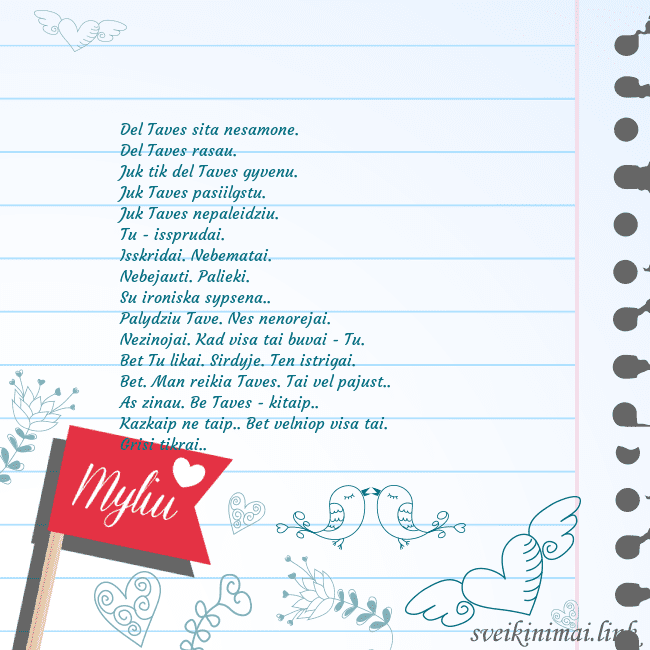 Del Taves sita nesamone.
Del Taves rasau.
Juk tik del Taves gyvenu.
Juk Taves pasiilgstu.
Juk Taves nepaleidziu.
Tu - issprudai.
Isskridai. Nebematai.
Nebejauti. Palieki.
Su ironiska sypsena..
Palydziu Tave. Nes nenorejai.
Nezinojai. Kad visa tai buvai - Tu.
Bet Tu likai. Sirdyje. Ten istrigai.
Bet. Man reikia Taves. Tai vel pajust..
As zinau. Be Taves - kitaip..
Kazkaip ne taip.. Bet velniop visa tai.
Grisi tikrai..
Myliu
sveikinimai.link